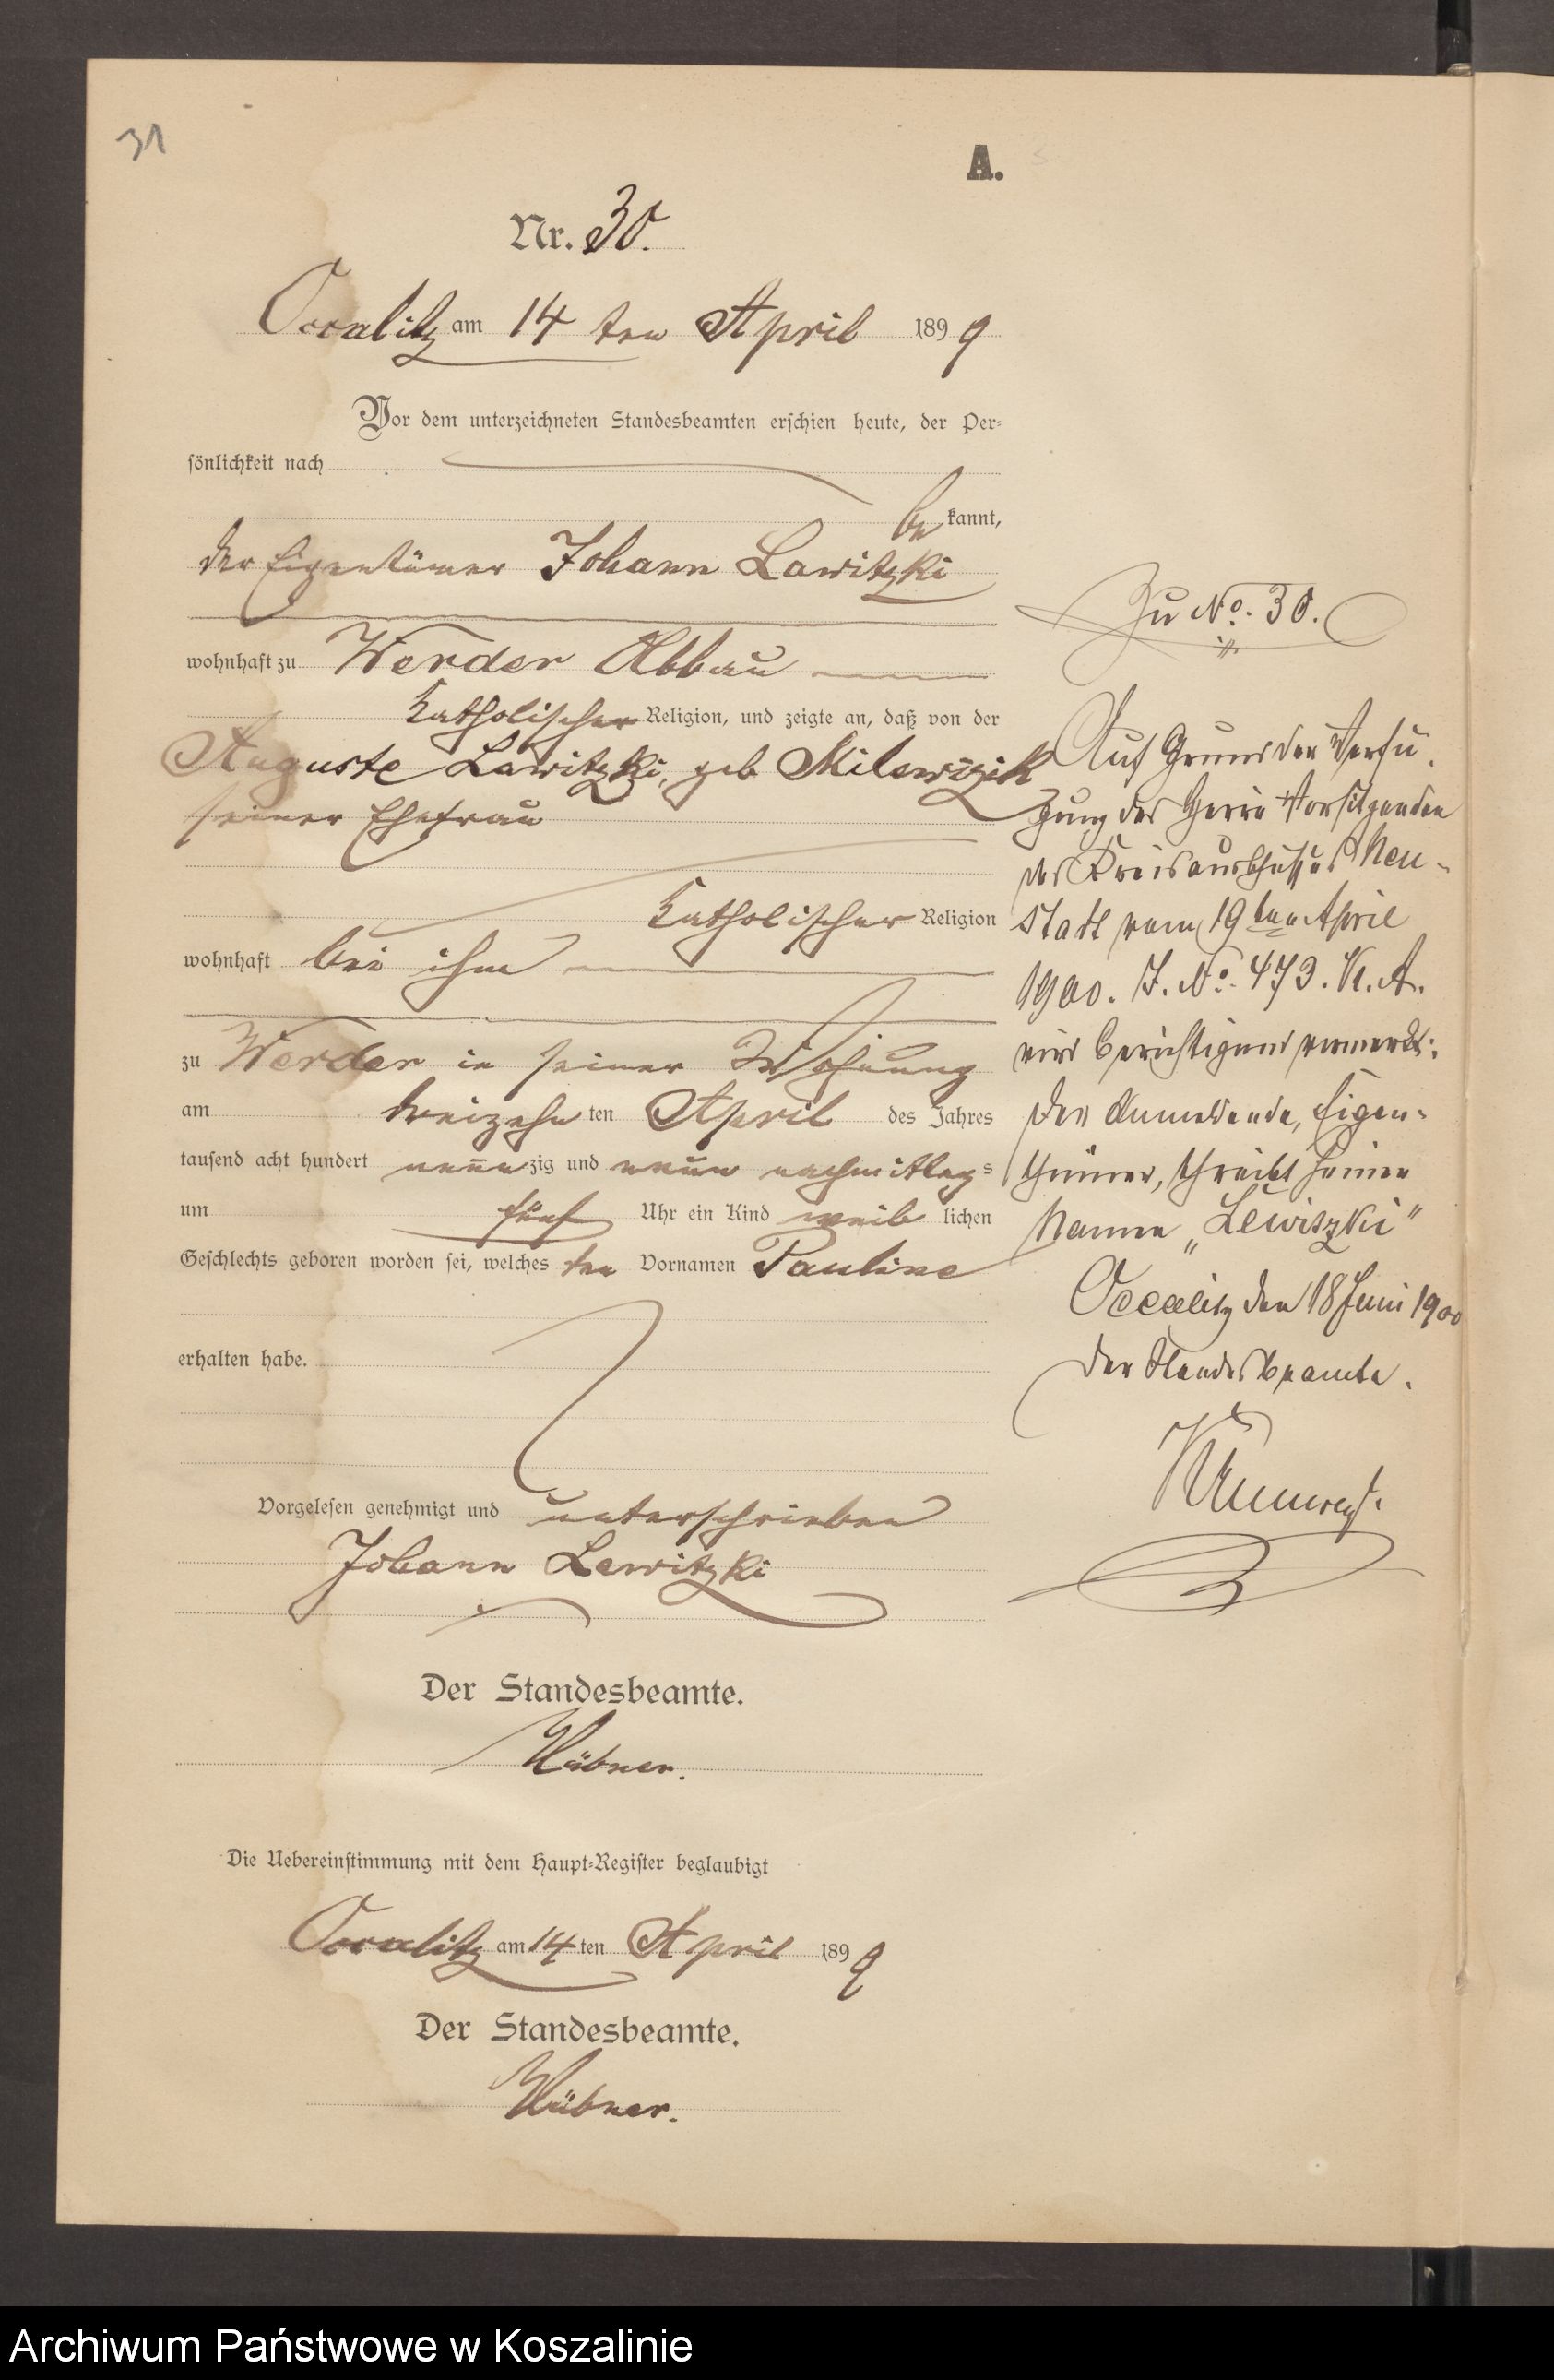 31
A.
Nr. 30.
Occalitz am 14 ten April 1899
Vor dem unterzeichneten Standesbeamten erschien heute, der Per-
sönlichkeit nach
be kannt,
der Eigentümer Johann Lawitzki
wohnhaft zu Werder Abbau
katholischer Religion, und zeigte an, daß von der
Auguste Lawitzki, geb Milewizik
seiner Ehefrau
katholischer Religion
wohnhaft bei ihm
zu Werder in seiner Wohnung
am dreizehn ten April des Jahres
tausend acht hundert neunzig und neun nachmittags
um fünf Uhr ein Kind weib lichen
Geschlechts geboren worden sei, welches den Vornamen Pauline
erhalten habe.
Vorgelesen genehmigt und unterschrieben
Johann Lewitzki
Der Standesbeamte.
Hübner.
Die Uebereinstimmung mit dem Haupt-Register beglaubigt
Occalitz am 14 ten April 1899
Der Standesbeamte.
Hübner.
Zu No. 30.
Auf Grund der Verfü-
gung des Herrn Vorsitzenden
des Kreisausschusses Neu-
stadt vom 19ten April
1900. J. No. 473. K. A.
wird berichtigend vermerkt:
Der Anmeldende, Eigen-
thümer, schreibt seinen
Namen „Lewitzki"
Occalitz den 18 Juni 1900
Der Standesbeamte.
Archiwum Państwowe w Koszalinie